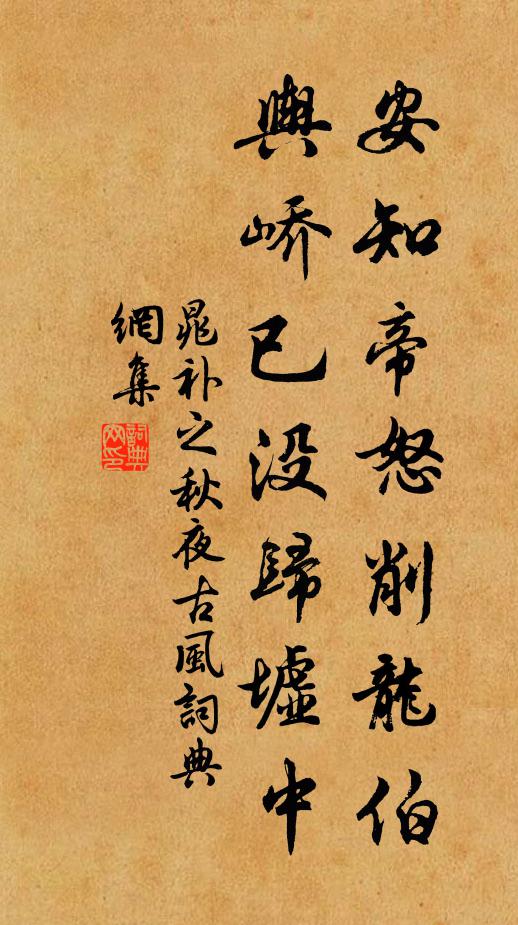 安知帝怒削龍伯
輿嶠已没歸墟中
晁补之秋夜古風詞典
網集
詞典
网印